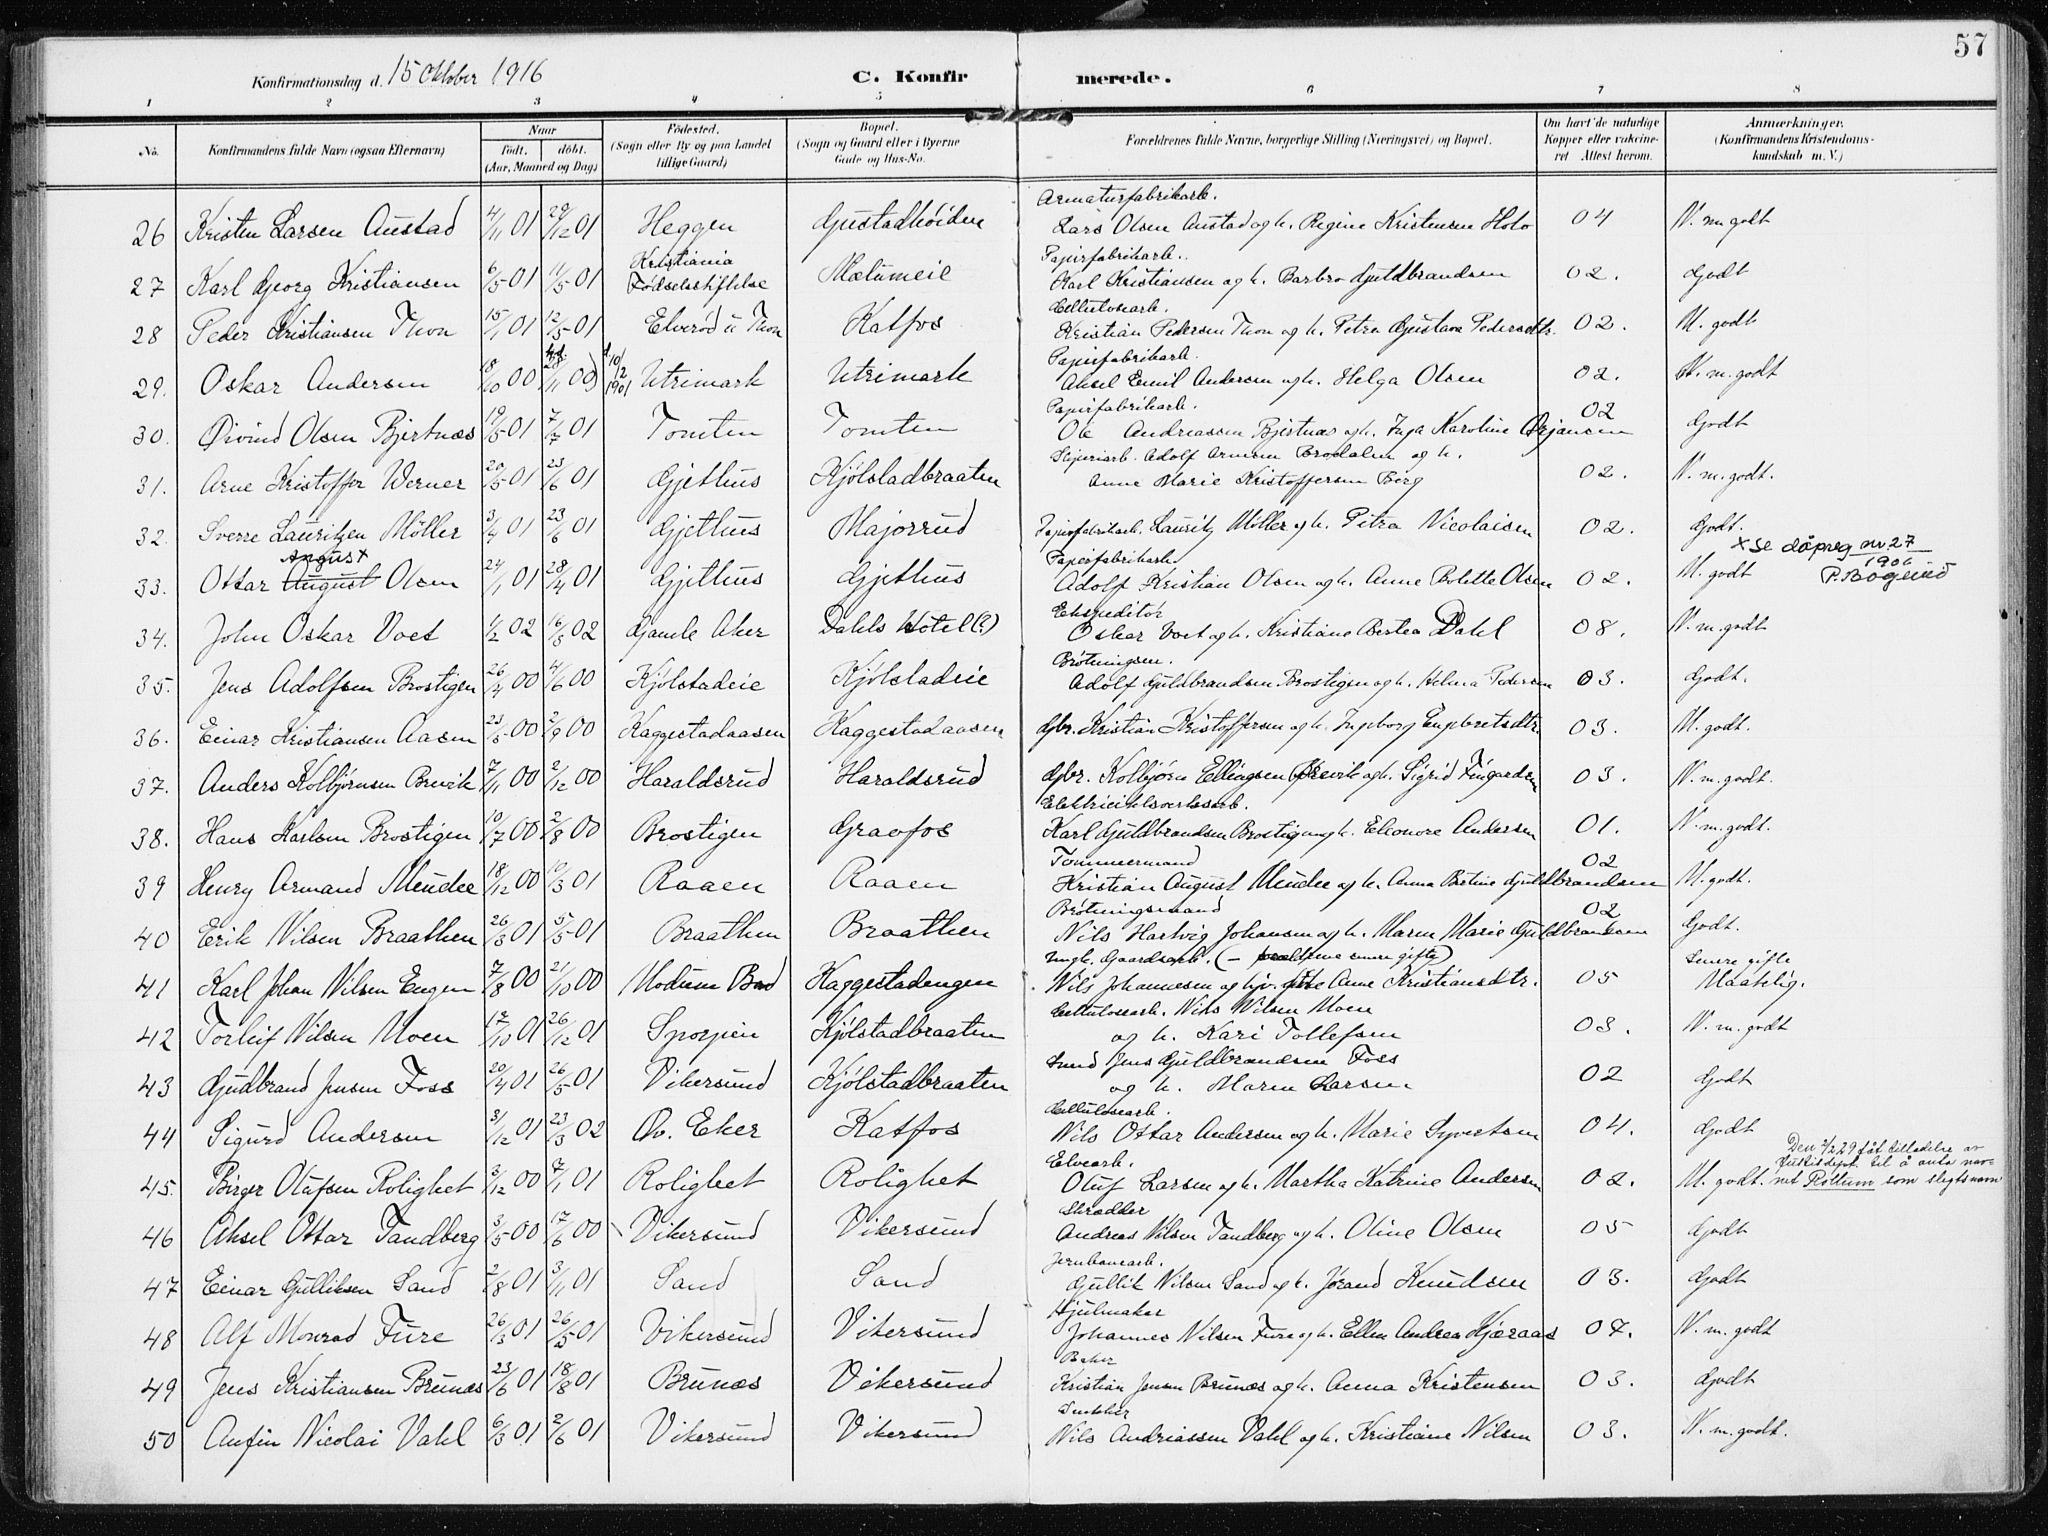 57
Konfirmationsdag d. 15 Oktober 1916 C. Konfirmerede.
1 2 3 4 5 6 7 8
No. Konfirmandens fulde Navn (ogsaa Efternavn) Naar født. døbt. (Aar, Maaned og Dag) Fødested. (Sogn eller By og paa Landet tillige Gaard) Bopæl. (Sogn og Gaard eller i Byerne Gade og Hus-No. Forældrenes fulde Navne, borgerlige Stilling (Næringsvei) og Bopæl. Om havt de naturlige Kopper eller vaccineret Attest herom. Anmærkninger. (Konfirmandens Kristendomskundskab m. V.)
Armaturfabrikarb.
26 Kristen Larsen Austad 4/11 01 29/12 01 Heggen Gustadhöiden Lars Olsen Austad og h. Regine Kristensen Holo 04 N. m. godt
Kristiania Papirfabrikarb.
27 Karl Georg Kristiansen 6/5 01 11/5 01 Födselsstiftelse Mælumeie Karl Kristiansen og h. Barbro Guldbrandsen 02. Godt
Cellulosearb.
28 Peder Kristiansen Thon 15/1 01 12/5 01 Elverød u Thon Katfos Kristian Pedersen Thon og h. Petra Gustava Pedersdtr. 02. M. godt
Papirfabrikarb.
29. Oskar Andersen 18/10 00 28/11 00) 10/2 1901 Utrimark Utrimark Aksel Emil Andersen og h. Helga Olsen 02. N. m. godt
Papirfabrikarb.
30. Øivind Olsen Bjertnæs 19/5 01 7/7 01 Tomten Tomten Ole Andreassen Bjertnæs og h. Inga Karoline Ørjansen 02 Godt
Sliperiarb. Adolf Armin Brodalen og h.
31. Arne Kristoffer Werner 20/5 01 23/6 01 Gjethus Kjölstadbraaten Anne Marie Kristoffersen Berg 02. N. m. godt.
32. Sverre Lauritzen Möller 3/4 01 23/6 01 Gjethus Majorrud Papirfabrikarb. Lauritz Möller og h. Petra Nicolaisen 02. Godt.
August x Papirfabrikarb. x Se dåpreg nr. 27
33. Ottar August Olsen 24/1 01 28/4 01 Gjethus Gjethus Adolf Kristian Olsen og h. Anne Bolette Olsen 02. M. godt 1901 P. Bogerud
Ekspeditör
34. John Oskar Voet 4/2 02 16/3 02 Gamle Aker Dahls Hotel (?) Oskar Voet og h. Kristiane Bertea Dahl 08. N. m. godt
Brötningsm.
35. Jens Adolfsen Brostigen 26/4 00 4/6 00 Kjölstadeie Kjölstadeie Adolf Guldbrandsen Brostigen og h. Helma Pedersen 03. Godt.
36. Einar Kristiansen Aasen 23/5 00 2/9 00 Kaggestadaasen Kaggestadaasen Gbr. Kristian Kristoffersen og h. Ingeborg Engebretsdtr. 03. M. godt.
37. Anders Kolbjørnsen Brevik 7/11 00 2/12 00 Haraldsrud Haraldsrud Gbr. Kolbjørn Ellingsen Brevik og h. Sigrid Fingarden 03. N. m. godt.
Elektricitetsverksarb.
38. Hans Karlsen Brostigen 10/7 00 2/8 00 Brostigen Gravfos Karl Guldbrandsen Brostigen og h. Eleonore Andersen 01. N. m. godt.
Tømmermand
39 Henry Armand Mendee 18/12 00 10/3 01 Raaen Raaen Kristian August Mendee og h. Anna Bertine Guldbrandsen 02 M. godt.
Brötningsmand
40 Erik Nilsen Braathen 26/3 01 5/5 01 Braathen Braathen Nils Hartvig Johansen og h. Maren Marie Guldbrandsen 02 Godt.
Ungk. Gaardsarb. (– forældrene senere gifte) Senere gifte
41 Karl Johan Nilsen Engen 7/8 00 21/10 00 Modum Bad Kaggestadengen Nils Johannesen og Anne Kristiansdtr. 05 Maatelig.
Cellulosearb. Nils Nilsen Moen
42 Torleif Nilsen Moen 17/10 01 26/12 01 Kjölstadbraaten og h. Kari Tollefsen 03. N. m. godt
Smed Jens Guldbrandsen Foss
43 Gudbrand Jensen Foss 20/4 01 26/5 01 Vikersund Kjölstadbraaten og h. Maren Larsen 02 Godt
Cellulosearb.
44 Sigurd Andersen 31/12 01 23/3 02 Øv. Eker Katfos Nils Ottar Andersen og h. Marie Syvertsen 04. Godt
Elvearb. Den 2/2 29 fåt tilladelse av Justisdept. til å anta nav-
45. Birger Olafsen Rolighet 3/12 00 7/1 01 Rolighet Rolighet Oluf Larsen og h. Martha Katrine Andersen 02. M. godt. net Röllum som slegtsnavn
Skrædder
46 Aksel Ottar Tandberg 3/5 00 17/6 00 Vikersund Vikersund Andreas Nilsen Tandberg og h. Oline Olsen 05 Godt
Jernbanearb.
47 Einar Gulliksen Sand 2/8 01 3/11 01 Sand Sand Gullik Nilsen Sand og h. Jörand Knudsen 03. Godt
Hjulmaker
48 Alf Monrad Fure 26/3 01 26/5 01 Vikersund Vikersund Johannes Nilsen Fure og h. Ellen Andrea Kjæraas 07. N. m. godt
Baker
49 Jens Kristiansen Brunæs 23/6 01 18/8 01 Brunæs Vikersund Kristian Jensen Brunæs og h. Anna Kristensen 03. Godt
Snekker
50 Anfin Nicolai Vahl 6/3 01 2/6 01 Vikersund Vikersund Nils Andreassen Vahl og h. Kristiane Nilsen 03. N. m. godt.